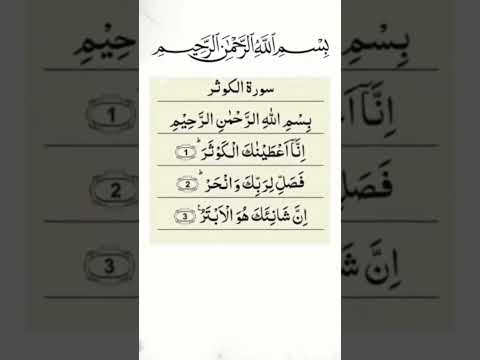 بِسْمِ اللهِ الرَّحْمٰنِ الرَّحِيْمِ
سورة الكوثر
بِسْمِ اللهِ الرَّحْمٰنِ الرَّحِيْمِ
اِنَّاۤ اَعْطَيْنٰكَ الْكَوْثَرَ ؕ ١
فَصَلِّ لِرَبِّكَ وَانْحَرْ ؕ ٢
اِنَّ شَانِئَكَ هُوَ الْاَبْتَرُ ٣